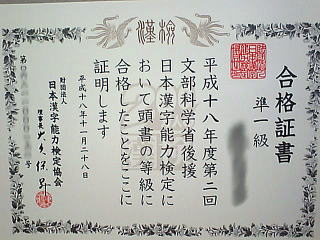 漢検
合格証書
準一級
平成十八年度第二回
文部科学省後援
日本漢字能力検定に
おいて頭書の等級に
合格したことをここに
証明します
平成十八年十一月二十八日
財団法人
日本漢字能力検定協会
理事長 大久保昇